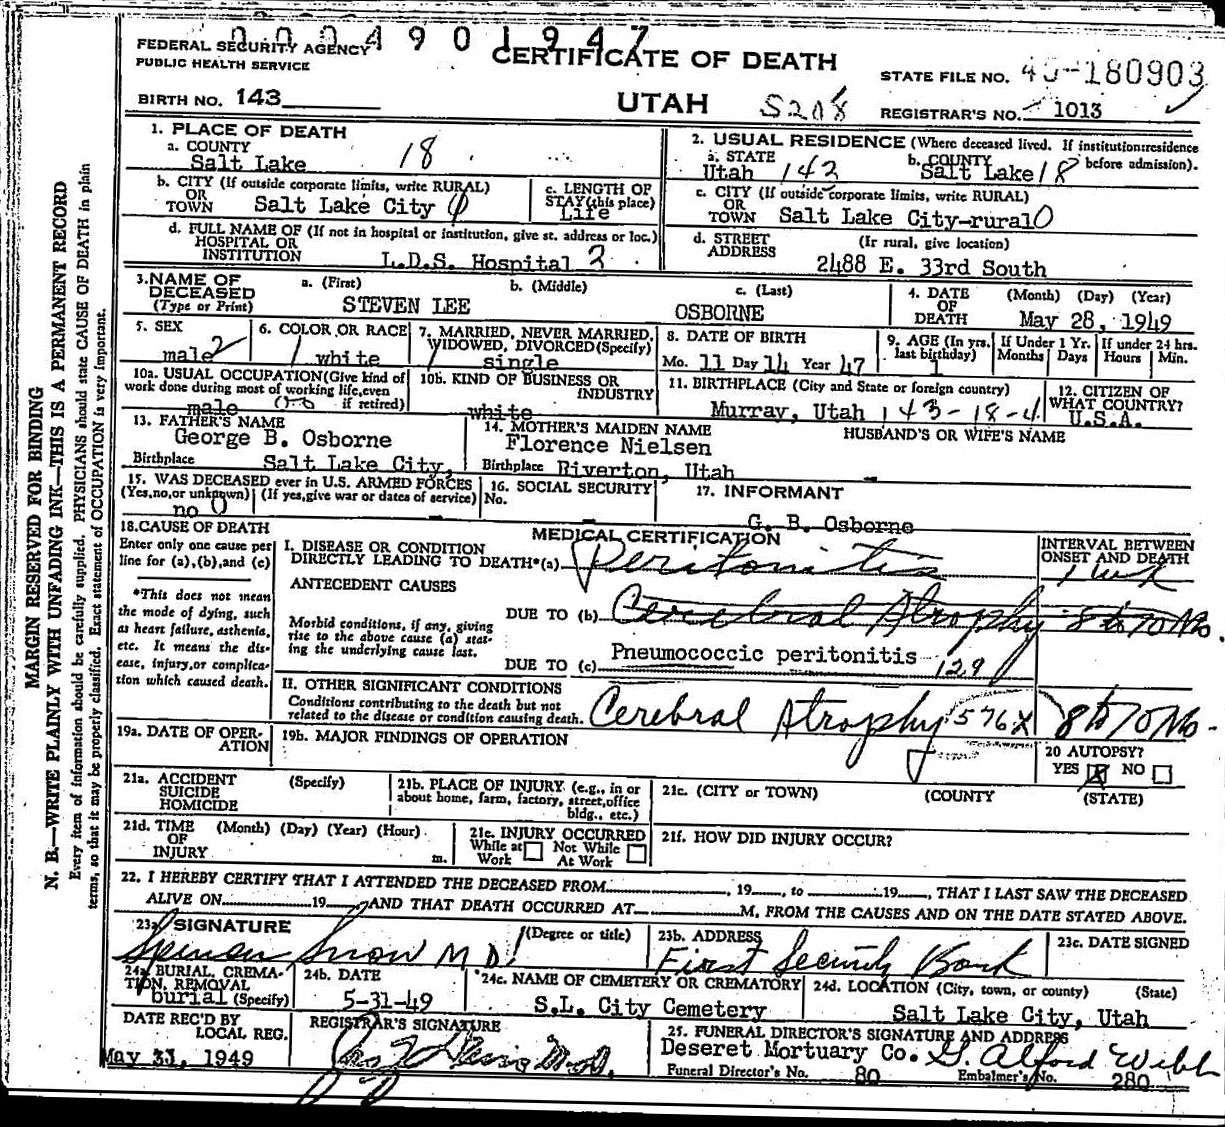 0004901947
FEDERAL SECURITY AGENCY
PUBLIC HEALTH SERVICE
CERTIFICATE OF DEATH
STATE FILE NO. 49-180903
BIRTH NO. 143
UTAH S208
REGISTRAR'S NO. 1013
1. PLACE OF DEATH
a. COUNTY
Salt Lake 18
2. USUAL RESIDENCE (Where deceased lived. If institution:residence before admission).
a. STATE b. COUNTY
Utah 142 Salt Lake 18
b. CITY (If outside corporate limits, write RURAL)
OR
TOWN Salt Lake City
c. LENGTH OF
STAY (this place)
Life
c. CITY (If outside corporate limits, write RURAL)
OR
TOWN Salt Lake City-rural 0
d. FULL NAME OF (If not in hospital or institution, give st. address or loc.)
HOSPITAL OR
INSTITUTION L.D.S. Hospital 3
d. STREET (Ir rural, give location)
ADDRESS 2488 E. 33rd South
3. NAME OF a. (First) b. (Middle) c. (Last)
DECEASED
(Type or Print) STEVEN LEE OSBORNE
4. DATE (Month) (Day) (Year)
OF
DEATH May 28, 1949
5. SEX
male 2
6. COLOR OR RACE
1 white
7. MARRIED, NEVER MARRIED,
WIDOWED, DIVORCED (Specify)
1 single
8. DATE OF BIRTH
Mo. 11 Day 14 Year 47
9. AGE (In yrs. last birthday)
1
If Under 1 Yr.
Months Days
If under 24 hrs.
Hours Min.
10a. USUAL OCCUPATION (Give kind of
work done during most of working life, even
if retired)
male
10b. KIND OF BUSINESS OR
INDUSTRY
white
11. BIRTHPLACE (City and State or foreign country)
Murray, Utah 143-18-4
12. CITIZEN OF
WHAT COUNTRY?
U.S.A.
13. FATHER'S NAME
George B. Osborne
Birthplace Salt Lake City,
14. MOTHER'S MAIDEN NAME
Florence Nielsen
Birthplace Riverton, Utah
HUSBAND'S OR WIFE'S NAME
15. WAS DECEASED ever in U.S. ARMED FORCES
(Yes, no, or unknown) (If yes, give war or dates of service)
no 0 -
16. SOCIAL SECURITY
No. -
17. INFORMANT
G. B. Osborne
18. CAUSE OF DEATH
Enter only one cause per
line for (a), (b), and (c)
*This does not mean
the mode of dying, such
as heart failure, asthenia,
etc. It means the dis-
ease, injury, or complica-
tion which caused death.
MEDICAL CERTIFICATION
I. DISEASE OR CONDITION
DIRECTLY LEADING TO DEATH*(a) Peritonitis
INTERVAL BETWEEN
ONSET AND DEATH
1 wk
ANTECEDENT CAUSES
Morbid conditions, if any, giving
rise to the above cause (a) stat-
ing the underlying cause last.
DUE TO (b) Cerebral Atrophy 8 to 10 Mo.
DUE TO (c) Pneumococcic peritonitis 129
II. OTHER SIGNIFICANT CONDITIONS
Conditions contributing to the death but not
related to the disease or condition causing death.
Cerebral Atrophy 576X 8 to 10 Mo-
19a. DATE OF OPER-
ATION
19b. MAJOR FINDINGS OF OPERATION
20 AUTOPSY?
YES X NO
21a. ACCIDENT (Specify)
SUICIDE
HOMICIDE
21b. PLACE OF INJURY (e.g., in or
about home, farm, factory, street, office
bldg., etc.)
21c. (CITY or TOWN) (COUNTY) (STATE)
21d. TIME (Month) (Day) (Year) (Hour)
OF
INJURY m.
21e. INJURY OCCURRED
While at Work Not While At Work
21f. HOW DID INJURY OCCUR?
22. I HEREBY CERTIFY THAT I ATTENDED THE DECEASED FROM , 19 , to , 19 , THAT I LAST SAW THE DECEASED
ALIVE ON 19 , AND THAT DEATH OCCURRED AT M, FROM THE CAUSES AND ON THE DATE STATED ABOVE.
23a SIGNATURE (Degree or title)
Spencer Snow M D
23b. ADDRESS
First Security Bank
23c. DATE SIGNED
24a BURIAL, CREMA-
TION, REMOVAL
burial (Specify)
24b. DATE
5-31-49
24c. NAME OF CEMETERY OR CREMATORY
S.L. City Cemetery
24d. LOCATION (City, town, or county) (State)
Salt Lake City, Utah
DATE REC'D BY
LOCAL REG.
May 31, 1949
REGISTRAR'S SIGNATURE
25. FUNERAL DIRECTOR'S SIGNATURE AND ADDRESS
Deseret Mortuary Co. G. Alford Webb
Funeral Director's No. 80 Embalmer's No. 280
MARGIN RESERVED FOR BINDING
N. B.—WRITE PLAINLY WITH UNFADING INK—THIS IS A PERMANENT RECORD
Every item of information should be carefully supplied. PHYSICIANS should state CAUSE OF DEATH in plain
terms, so that it may be properly classified. Exact statement of OCCUPATION is very important.